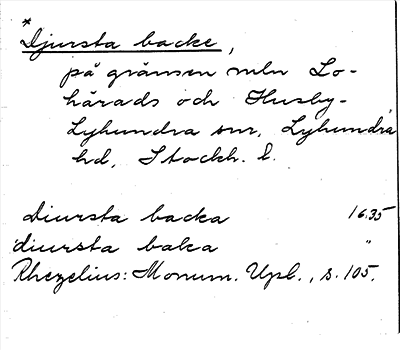 *Djursta backe,
på gränsen mln Lo-
härads och Husby-
Lyhundra snr, Lyhundra
hd, Stockh. l.
Diursta backa 1635
diursta baka "
Rhezelius: Monum. Upl., s. 105.